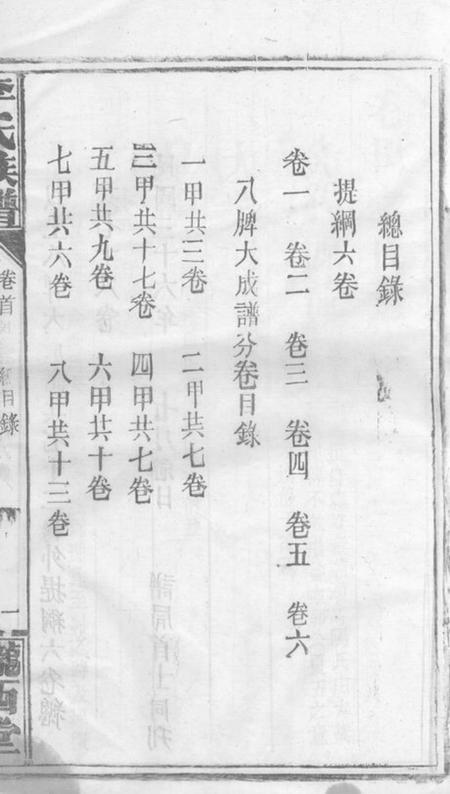 總目錄
提綱六卷
卷一 卷二 卷三 卷四 卷五 卷六
八牌大成譜分卷目錄
一甲共三卷 二甲共七卷
三甲共十七卷 四甲共七卷
五甲共九卷 六甲共十卷
七甲共六卷 八甲共十三卷
李氏族譜
卷首 總目錄
一
隴西堂